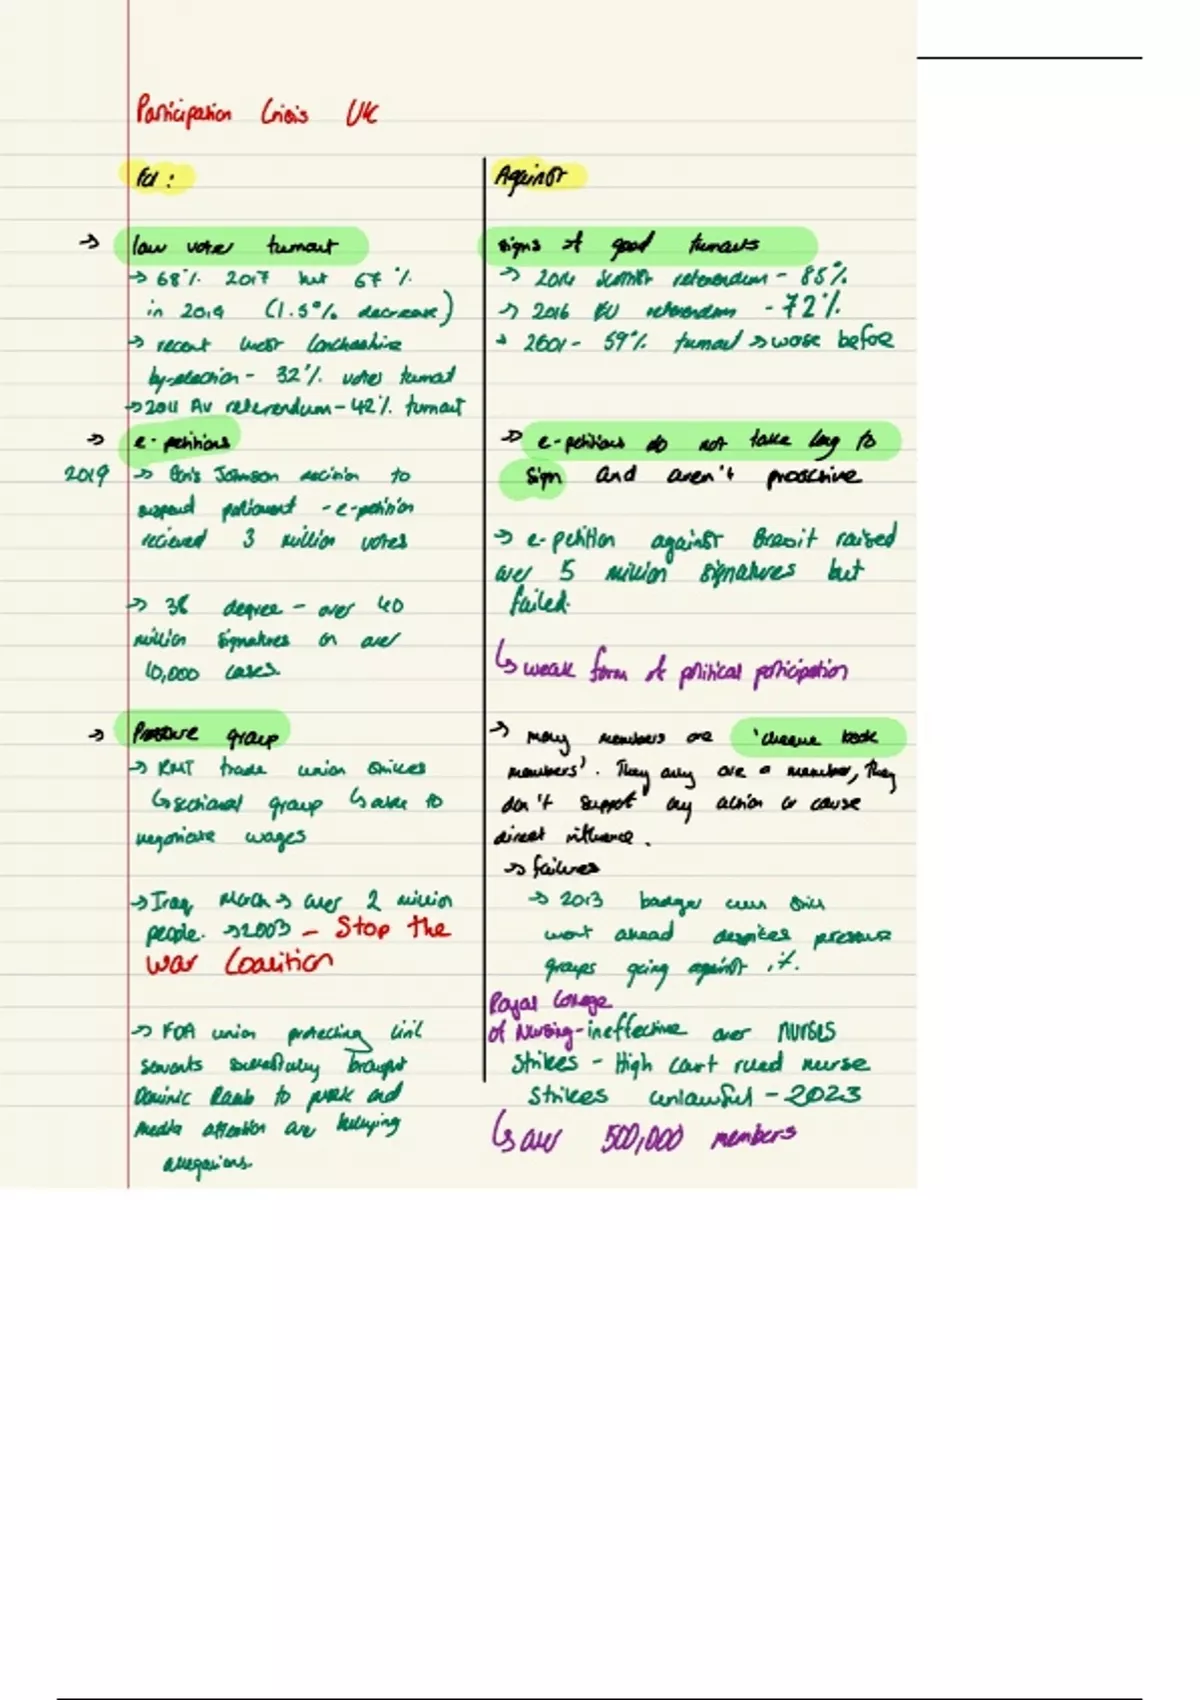 Participation Crisis UK
For:
→ low voter turnout
→ 68% 2017 but 67%
in 2019 (1.5% decrease)
→ recent West Lanchashire
by-election - 32% voter turnout
→ 2011 AV referendum - 42% turnout
→ e-petitions
2019 → Boris Johnson decision to
suspend parliament - e-petition
recieved 3 million votes
→ 38 degree - over 40
million signatures on over
10,000 cases.
→ Pressure group
→ RMT trade union strikes
↳ sectional group ↳ able to
negotiate wages
→ Iraq March → over 2 million
people. → 2003 - Stop the
war Coalition
→ FDA union protecting civil
servants successfully brought
Dominic Raab to and
media attention over bullying
allegations.
Against
signs of good turnouts
→ 2014 Scottish referendum - 85%
→ 2016 EU referendum - 72%
→ 2001 - 59% turnout → worse before
→ e-petitions do not take long to
sign and aren't proactive
→ e-petition against Brexit raised
over 5 million signatures but
failed.
↳ weak form of political participation
→ many members are 'cheque book
members'. They only are a member, they
don't support any action or cause
direct influence.
→ failures
→ 2013 badger cull still
went ahead despites pressure
groups going against it.
Royal College
of Nursing - ineffective over NURSES
strikes - High Court ruled nurse
strikes unlawful - 2023
↳ over 500,000 members